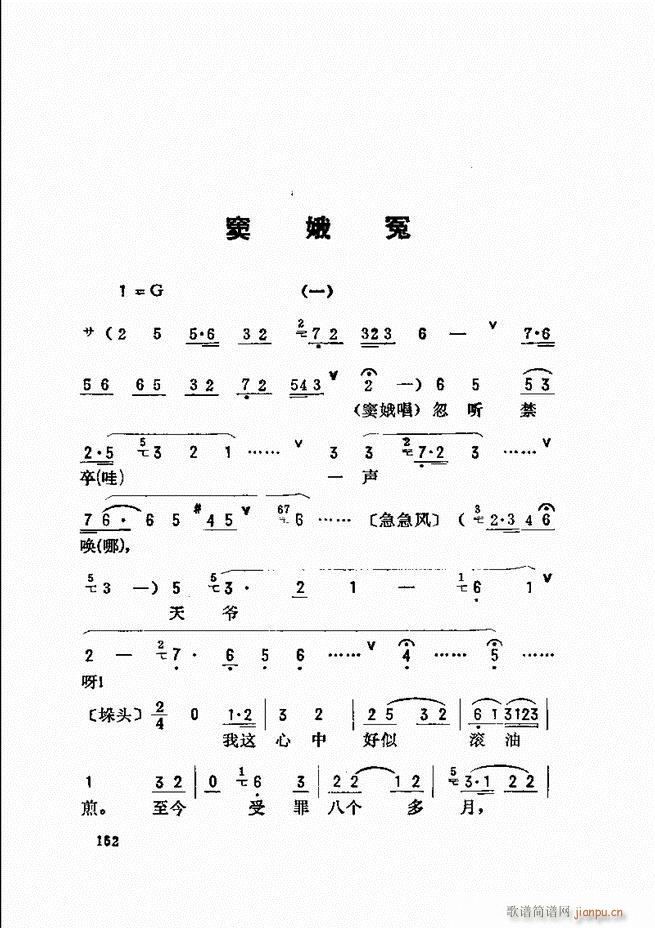 窦 娥 冤
1=G (一)
サ ( 2 5 5·6 3 2 2 7 2 323 6 — ∨ 7·6
5 6 6 5 3 2 7 2 5 4 3 ∨ 2 —) 6 5 5 3
(窦娥唱) 忽 听 禁
2·5 5 3 2 1 …… ∨ 3 3 2 7·2 3 …… ∨
卒(哇) 一 声
7 6· 6 5 #4 5 ∨ 67 6 …… 〔急急风〕 ( 3 2·3 4 6
唤(哪),
5 3 —) 5 5 3· 2 1 — 1 6 1 ∨
天 爷
2 — 2 7· 6 5 6 …… ∨ 4 …… 5 ∨
呀!
〔垛头〕 2/4 0 1·2 | 3 2 | 2 5 3 2 | 6 1 3123 |
我这 心 中 好似 滚 油
1 3 2 | 0 1 6 3 | 2 2 1 2 | 5 3·1 2 2 |
煎。 至今 受 罪 八个 多 月,
162
歌谱简谱网 jianpu.cn